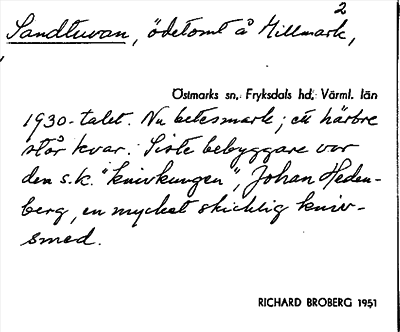 2
Sandtuvan, ödetomt å Hillmark,
Östmarks sn, Fryksdals hd, Värml. län
1930-talet. Nu betesmark; ett härbre
står kvar. Siste bebyggare var
den s.k. "knivkungen", Johan Heden-
berg, en mycket skicklig kniv-
smed.
RICHARD BROBERG 1951